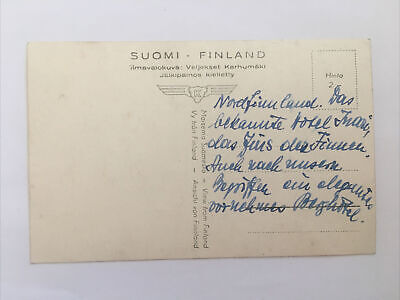 SUOMI - FINLAND
Ilmavalokuva: Veljekset Karhumäki
Jälkipainos kielletty
Hinta
Maisema Suomesta — View from Finland
Vy från Finland — Ansicht von Finnland
Nordfinnland. Das
bekannte Hotel
das der Finnen.
Auch nach unsern
Begriffen ein elegantes
vornehmes Berghotel.